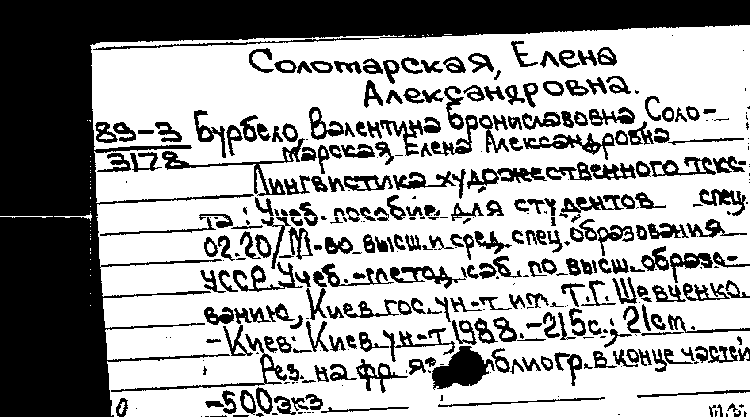 Солотарская, Елена
Александровна.
89-3
3178
Бурбело, Валентина Брониславовна, Соло-
тарская, Елена Александровна.
Лингвистика художественного текс-
та: Учеб. пособие для студентов спец.
02.20/М-во высш. и сред. спец. образования
УССР. Учеб.-метод. каб. по высш. образо-
ванию, Киев. гос. ун-т им. Т.Г. Шевченко.
-Киев: Киев. ун-т, 1988.-215с.; 21см.
Рез. на фр. яз. библиогр. в конце частей
-500экз.